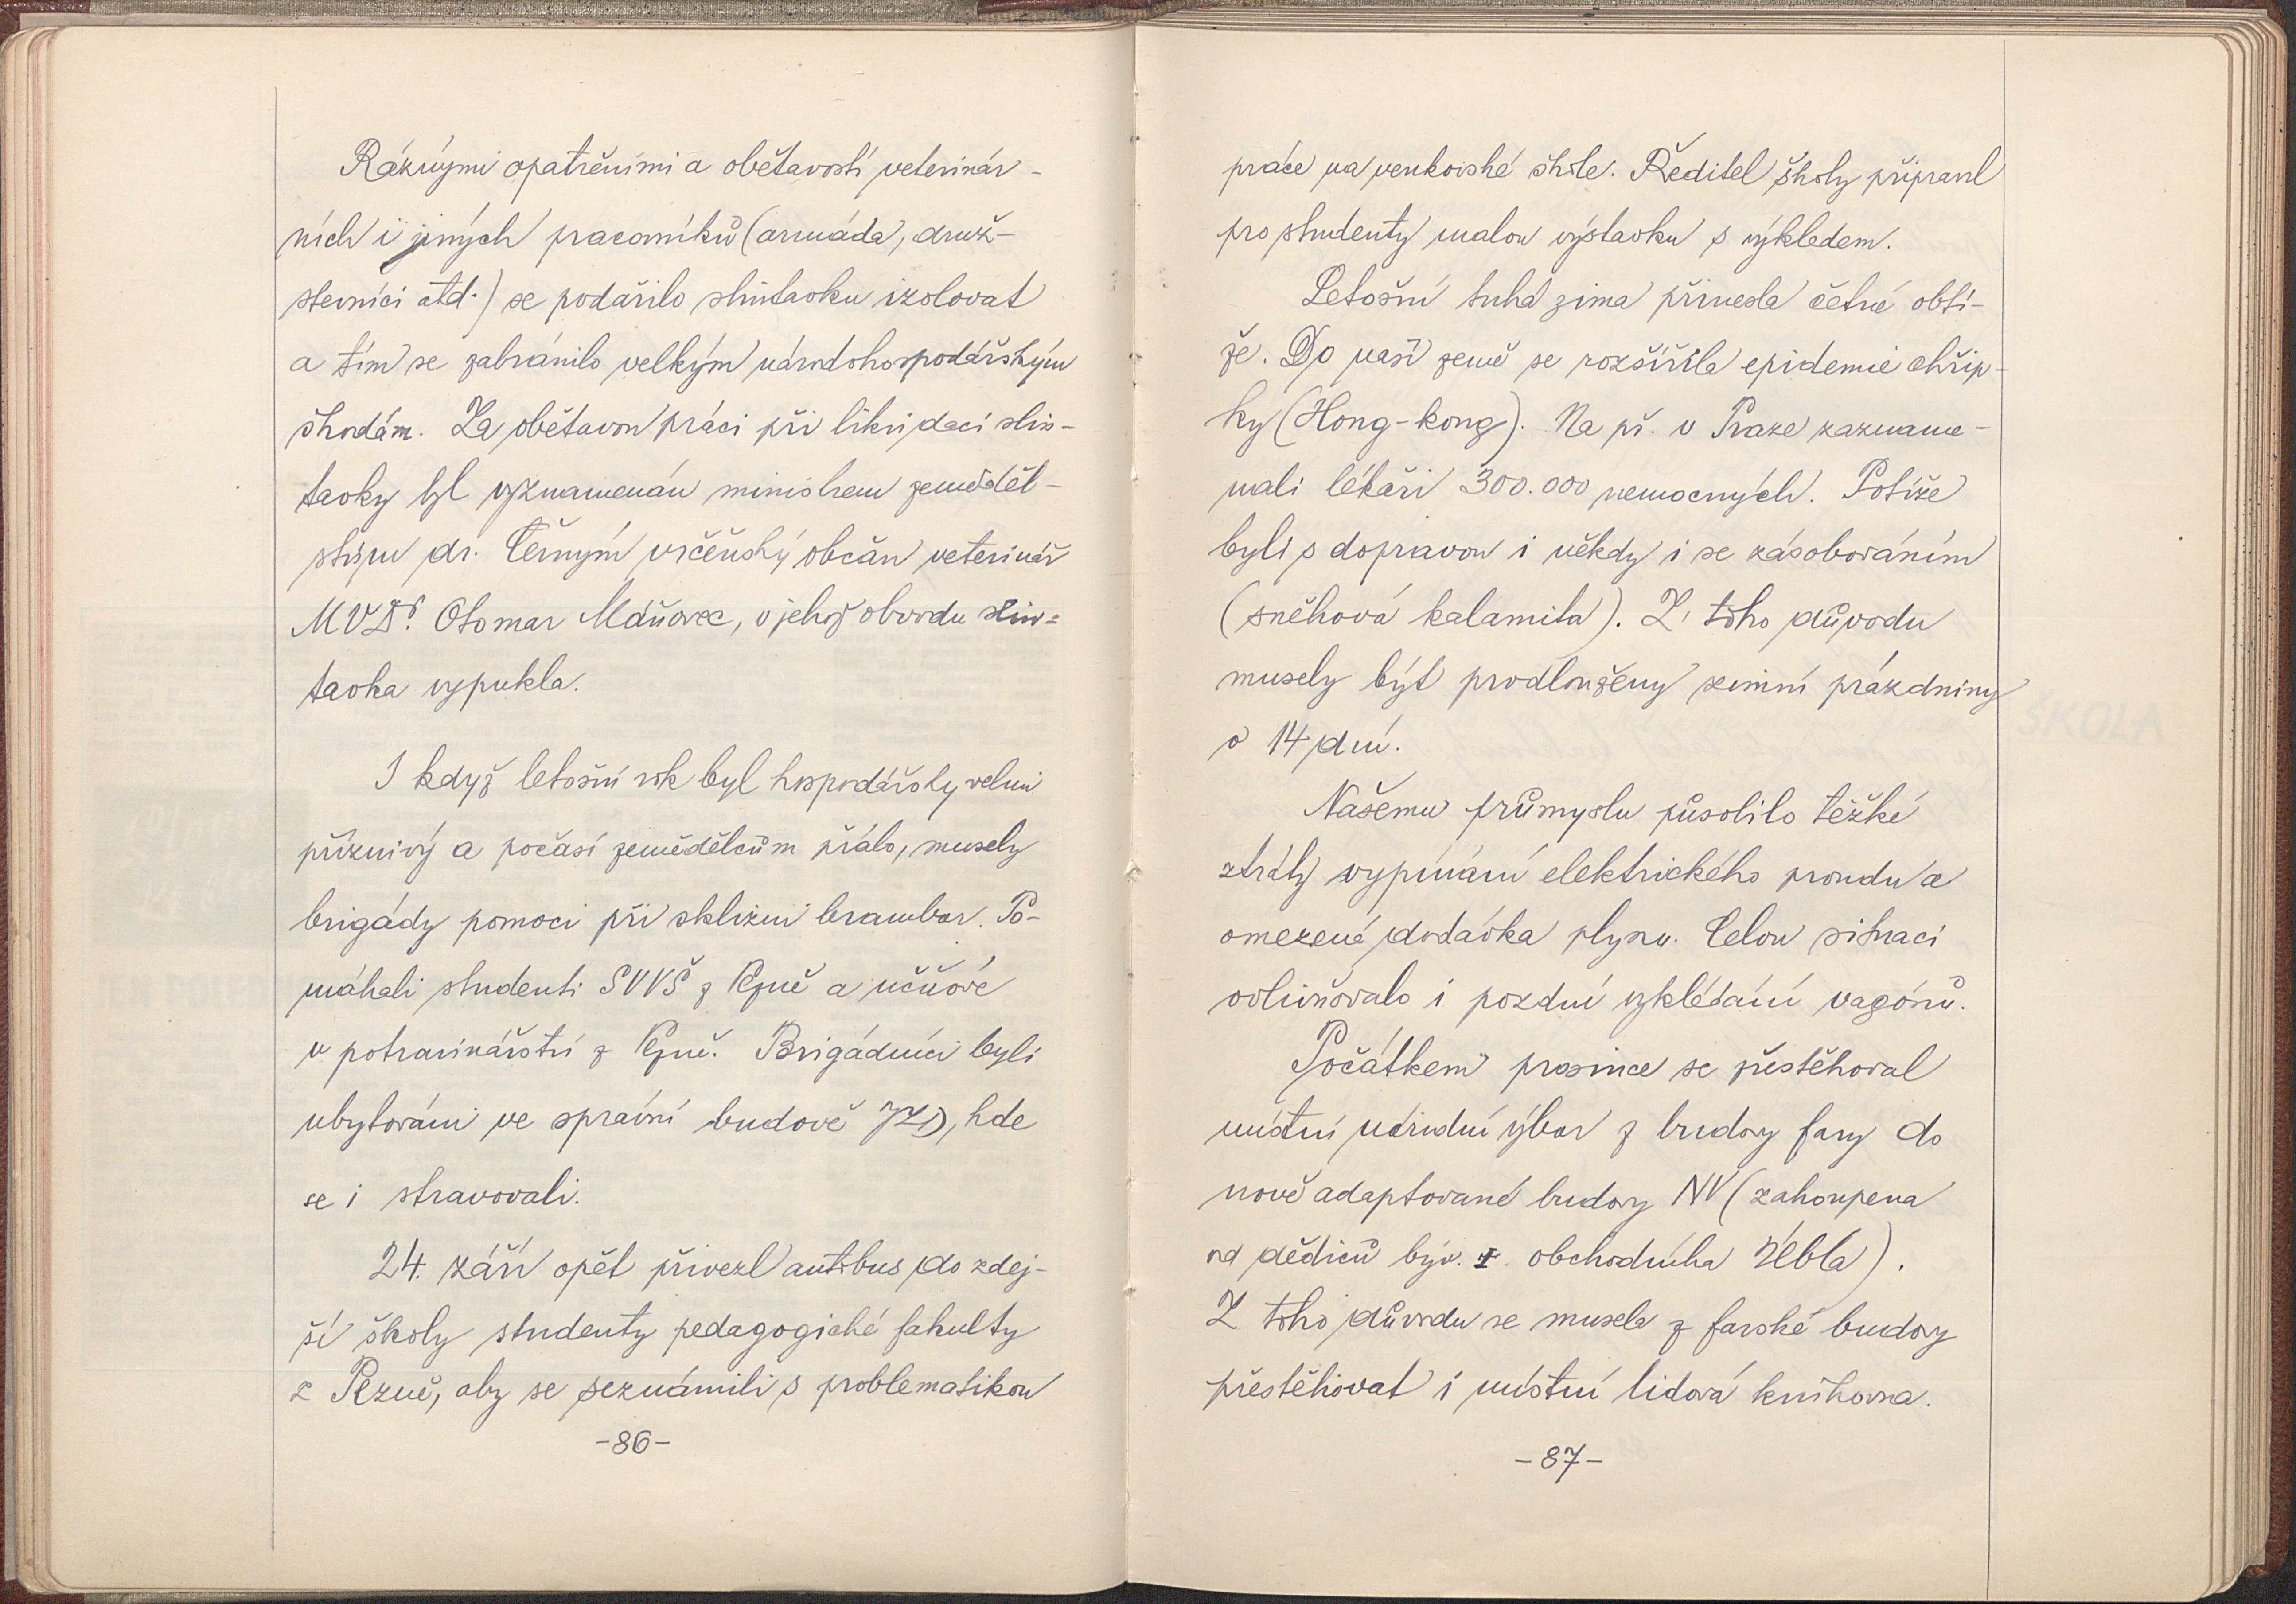 Ráznými opatřeními a obětavostí veterinár-
ních i jiných pracovníků (armáda, druž-
stevníci atd.) se podařilo slintavku izolovat
a tím se zabránilo velkým národohospodářským
škodám. Za obětavou práci při likvidaci slin-
tavky byl vyznamenán ministrem zeměděl-
ství dr. Černým vrčeňský občan veterinář
MVDr. Otomar Máňovec, v jehož obvodu slin-
tavka vypukla.
I když letošní rok byl hospodářsky velmi
příznivý a počasí zemědělcům přálo, musely
brigády pomoci při sklizni brambor. Po-
máhali studenti SVVŠ z Plzně a učňové
v potravinářství z Plzně. Brigádníci byli
ubytováni ve správní budově JZD, kde
se i stravovali.
24. září opět přivezl autobus do zdej-
ší školy studenty pedagogické fakulty
z Plzně, aby se seznámili s problematikou
-86-
práce na venkovské škole. Ředitel školy připravil
pro studenty malou výstavku s výkledem.
Letošní tuhá zima přinesla četné obtí-
že. Do naší země se rozšířila epidemie chřip-
ky (Hong-kong). Na př. v Praze zazname-
nali lékaři 300.000 nemocných. Potíže
byli s dopravou i někdy i se zásobováním
(sněhová kalamita). Z toho důvodu
musely být prodlouženy zimní prázdniny
o 14 dní.
Našemu průmyslu působilo těžké
ztráty vypínání elektrického proudu a
omezená dodávka plynu. Celou situaci
ovlivňovalo i pozdní vykládání vagónů.
Počátkem prosince se přestěhoval
místní národní výbor z budovy fary do
nově adaptované budovy NV (zakoupena
od dědiců býv. obchodníka Zébla).
Z toho důvodu se musela z farské budovy
přestěhovat i místní lidová knihovna.
-87-
ŠKOLA